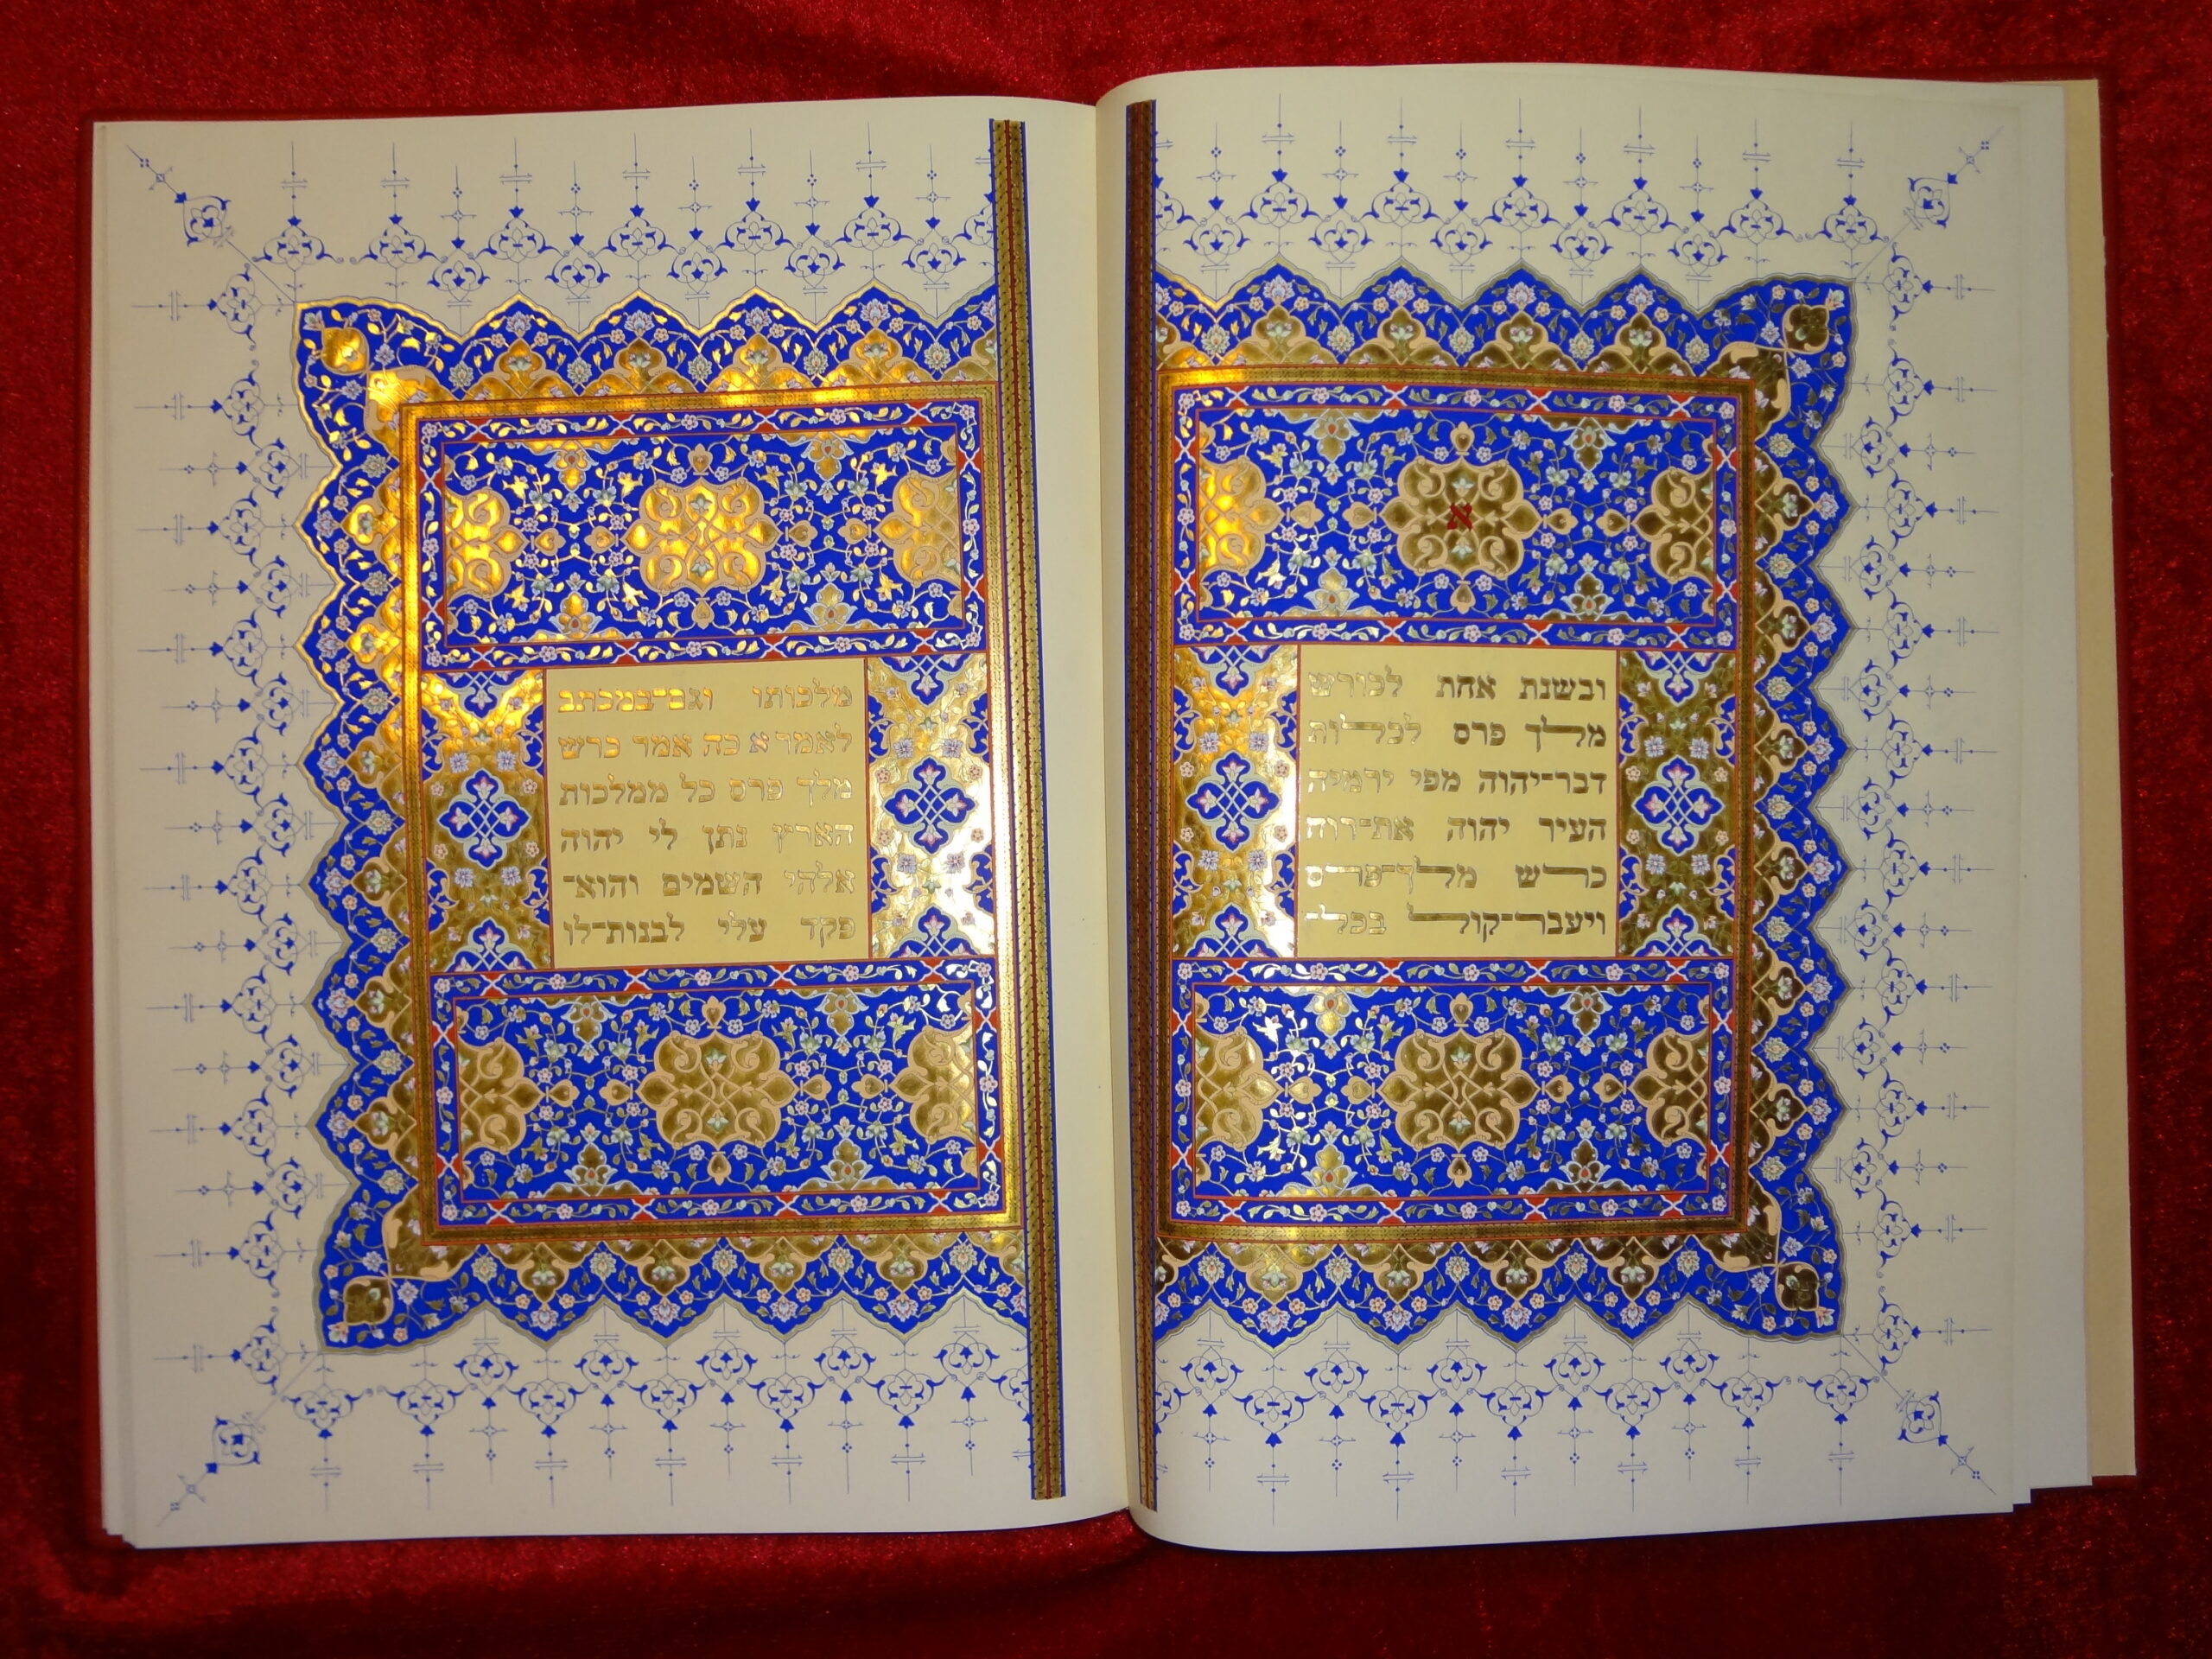 א
ובשנת אחת לכורש
מלך פרס לכלות
דבר־יהוה מפי ירמיה
העיר יהוה את־רוח
כרש מלך־פרס
ויעבר־קול בכל־
מלכותו וגם־במכתב
לאמר א כה אמר כרש
מלך פרס כל ממלכות
הארץ נתן לי יהוה
אלהי השמים והוא־
פקד עלי לבנות־לו